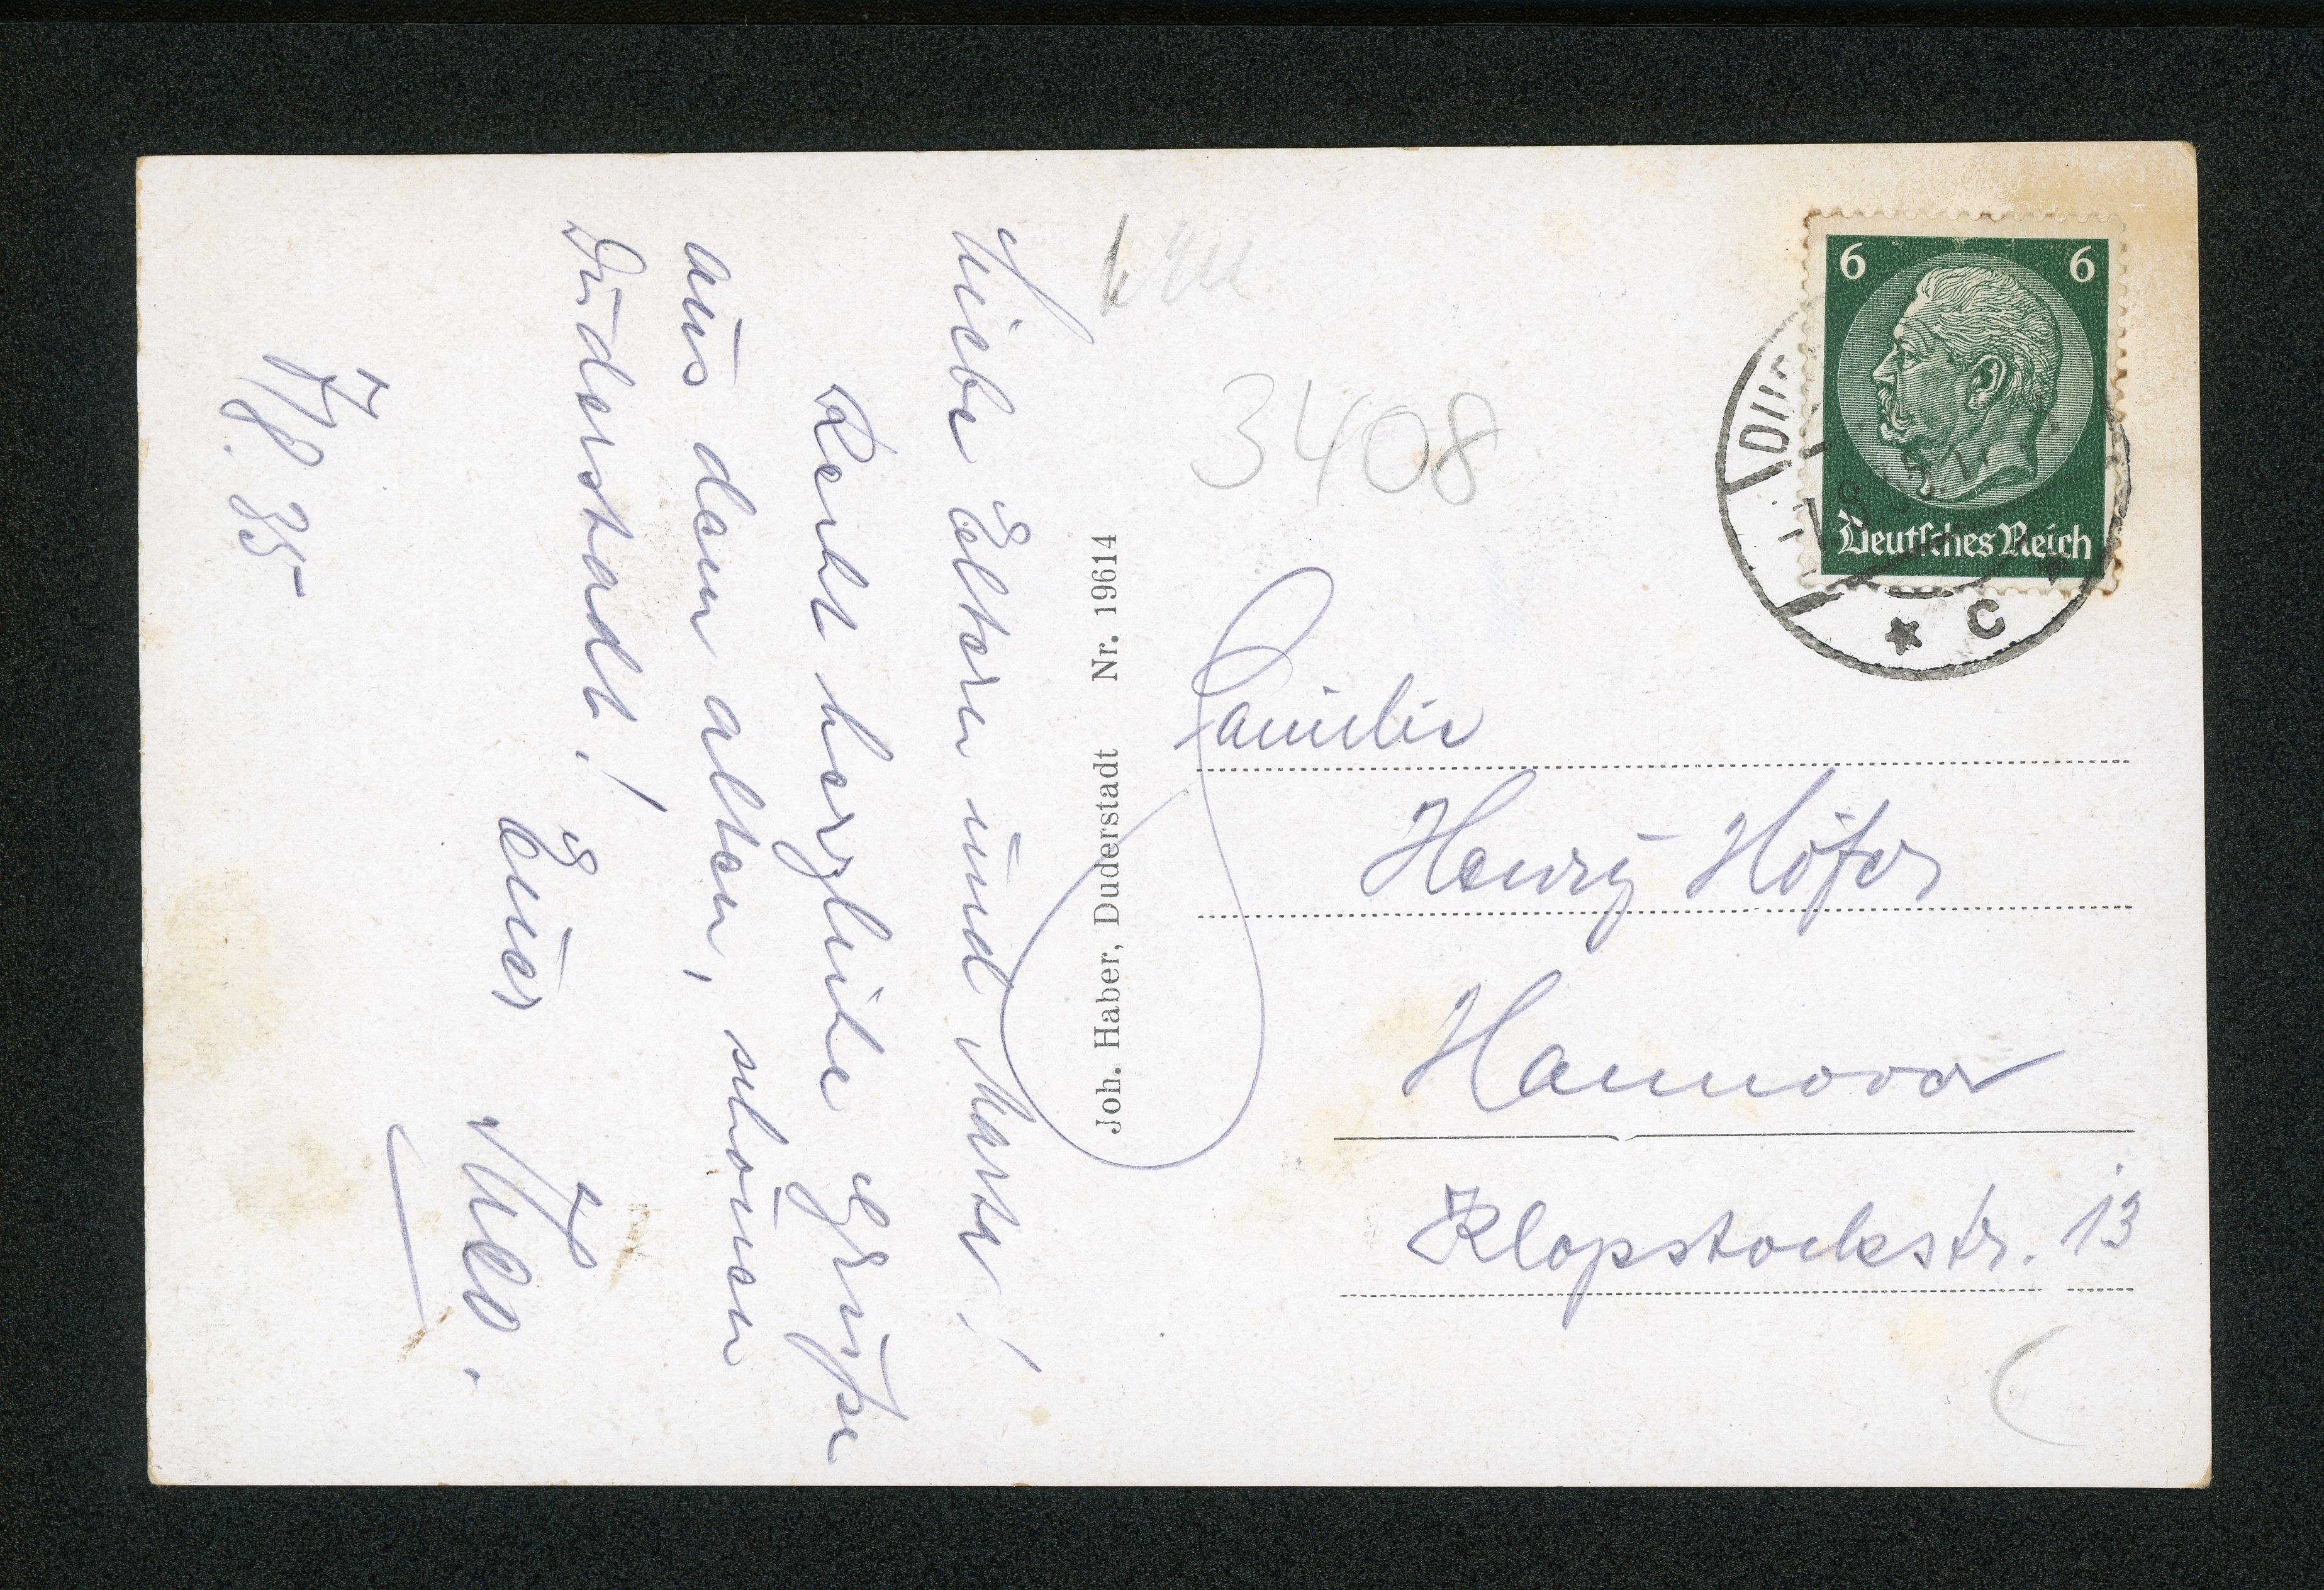 Liebe Eltern und
Recht herzliche Grüße
aus dem alten, schönen
Duderstadt!
Euer
7/8. 35
Joh. Haber, Duderstadt Nr. 19614
3408
6 6
Deutsches Reich
C
Familie
Henry Höfer
Hannover
Klopstockstr. 13